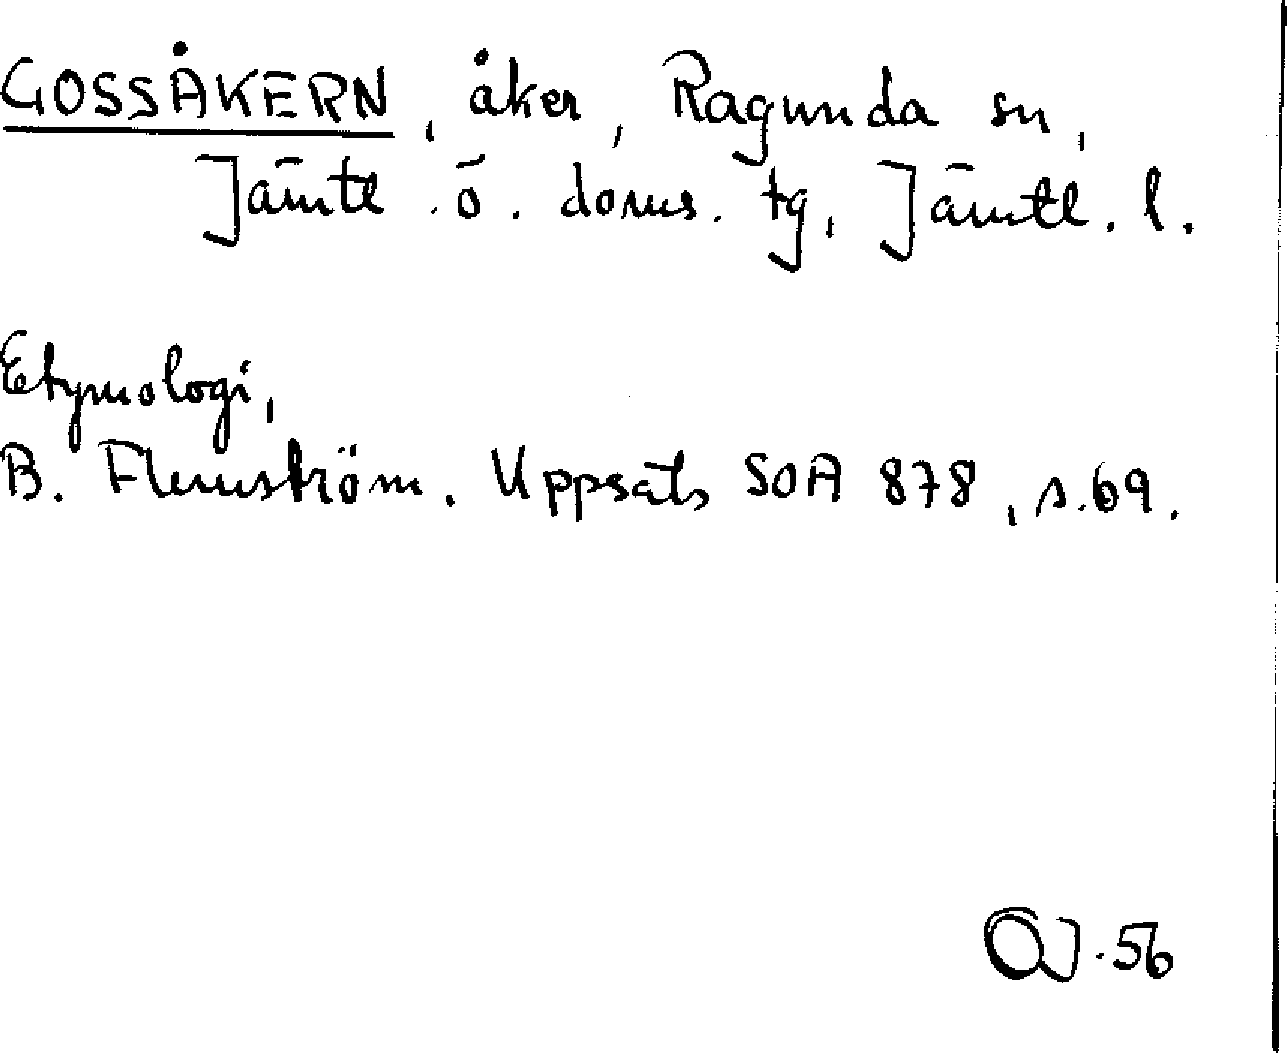 GOSSÅKERN, åker, Ragunda sn,
Jämtl. ö. doms. tg, Jämtl. l.
Etymologi,
B. Flemström. Uppsats SOA 878, s. 69.
OJ. 56